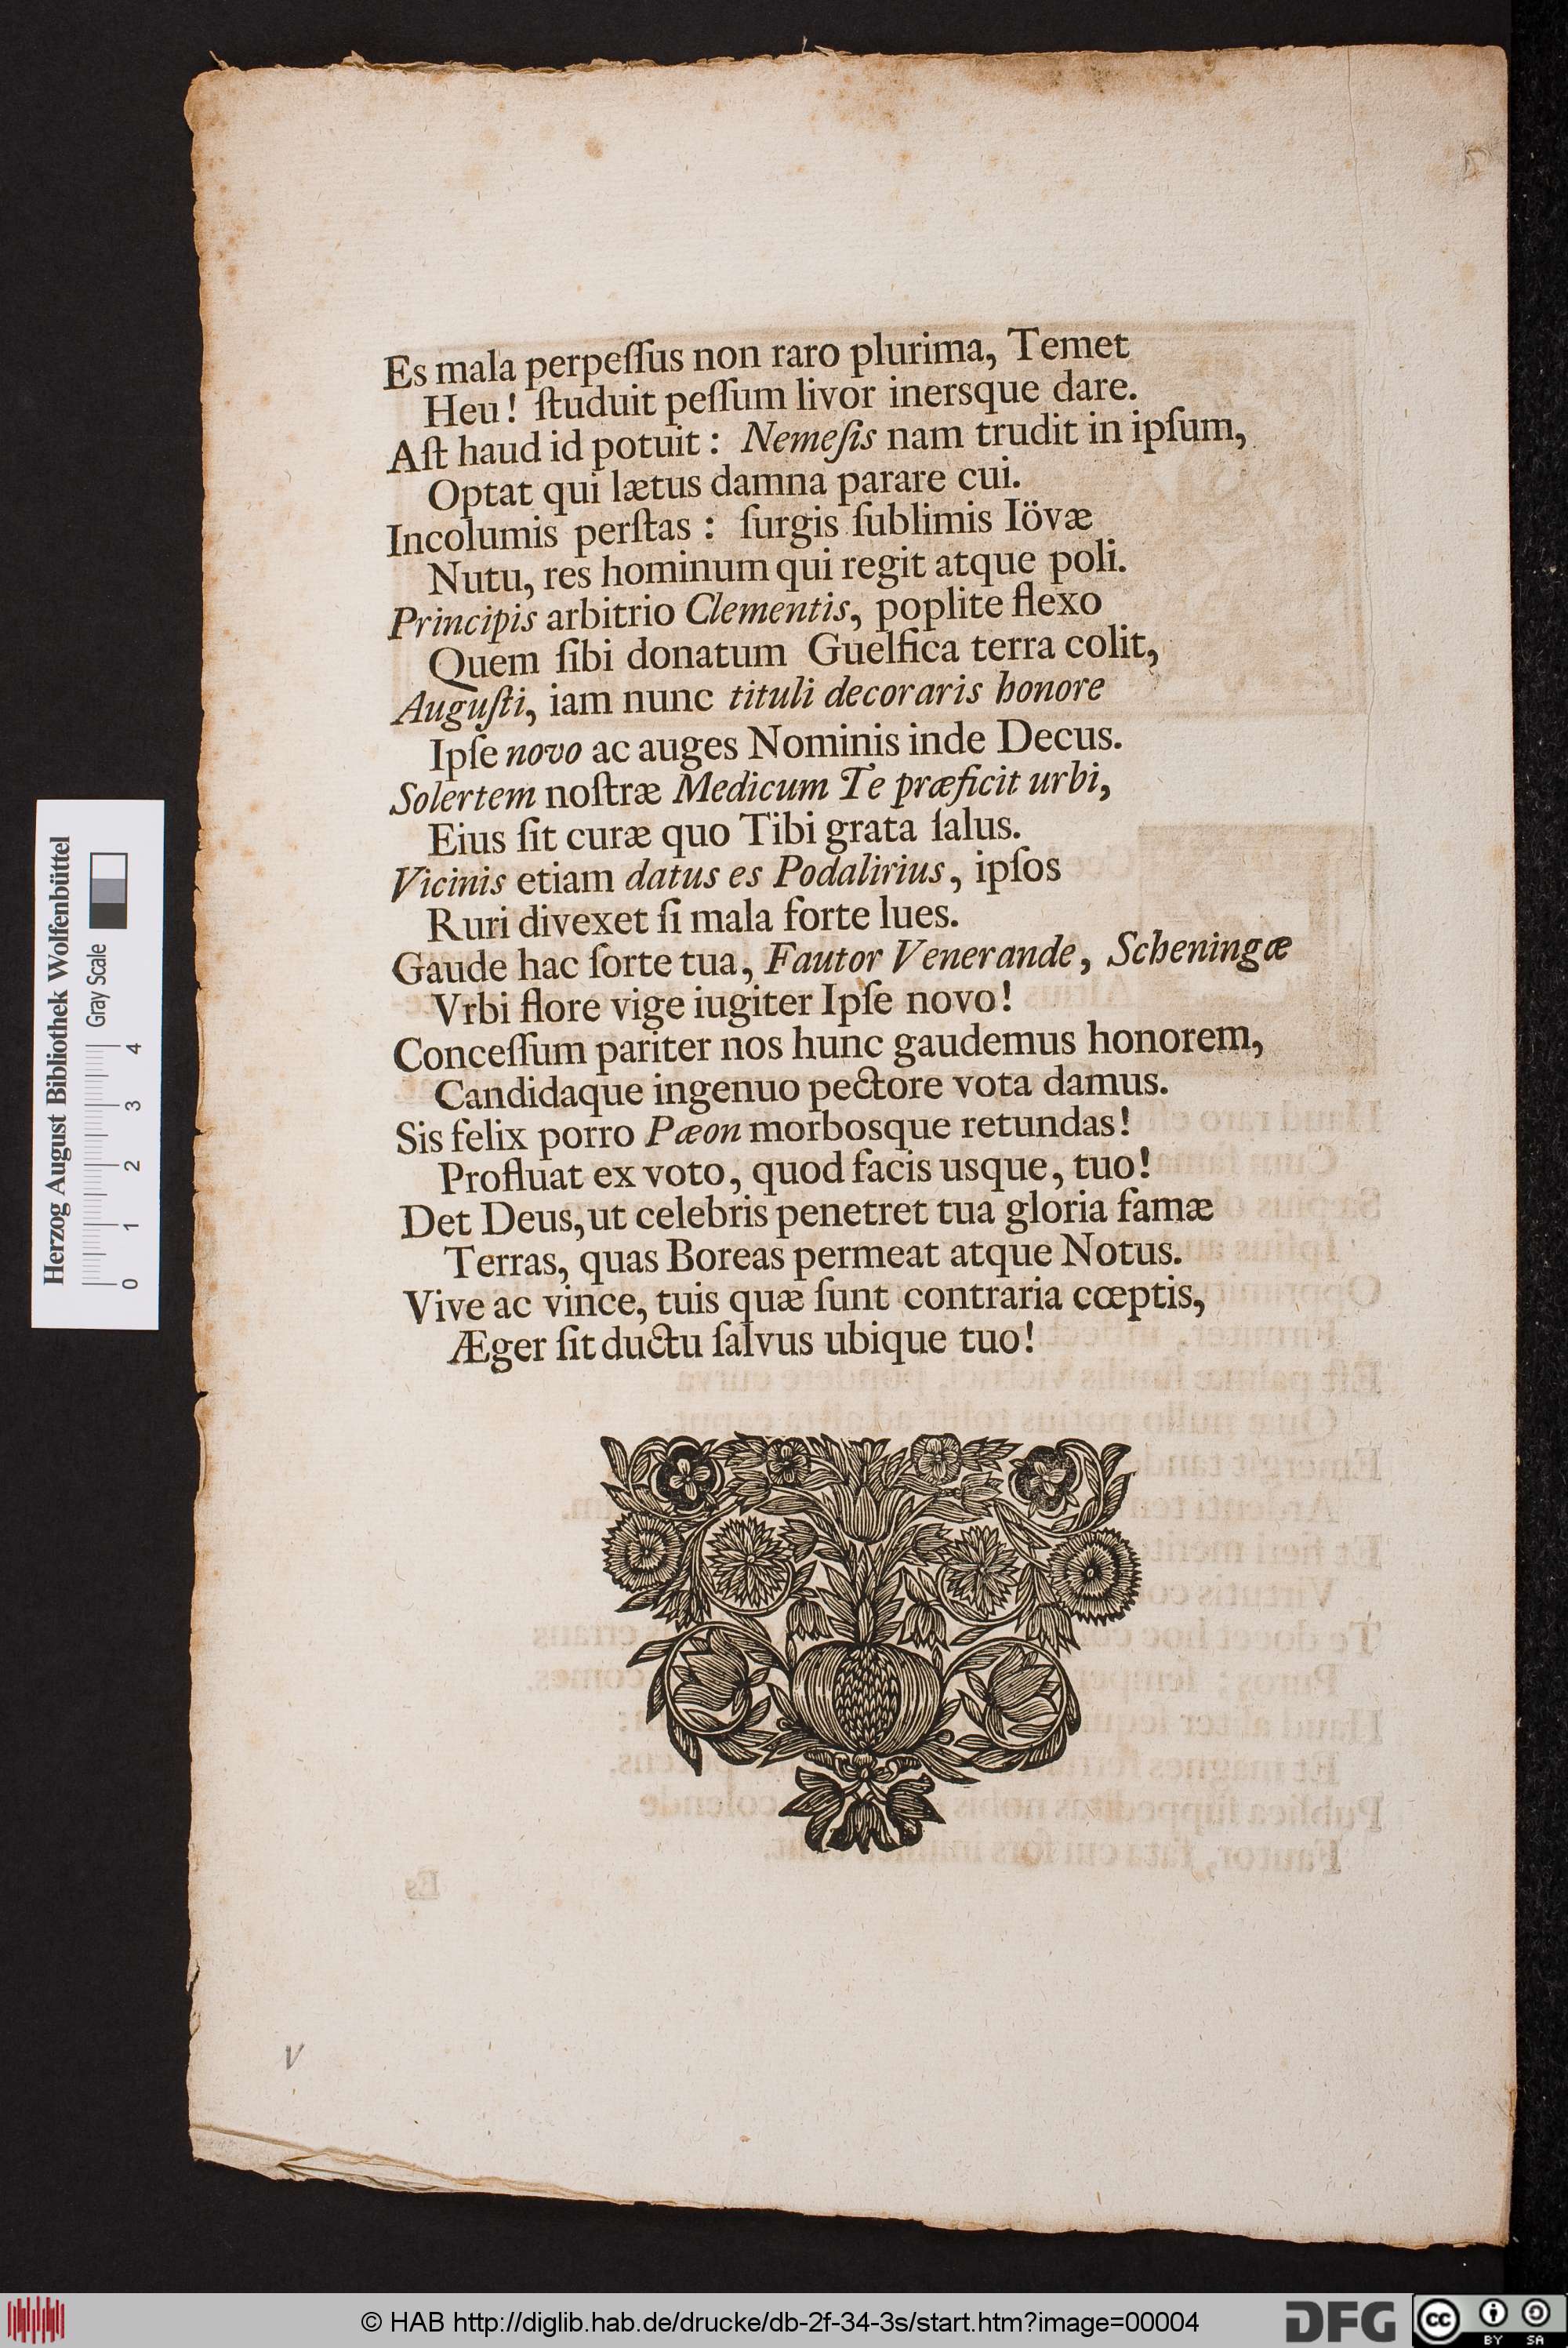 Es mala perpeſſus non raro plurima, Temet
Heu! ſtuduit peſſum livor inersque dare.
Aſt haud id potuit: Nemeſis nam trudit in ipſum,
Optat qui lætus damna parare cui.
Incolumis perſtas: ſurgis ſublimis Iövæ
Nutu, res hominum qui regit atque poli.
Principis arbitrio Clementis, poplite flexo
Quem ſibi donatum Guelfica terra colit,
Auguſti, iam nunc tituli decoraris honore
Ipſe novo ac auges Nominis inde Decus.
Solertem noſtræ Medicum Te præficit urbi,
Eius ſit curæ quo Tibi grata ſalus.
Vicinis etiam datus es Podalirius, ipſos
Ruri divexet ſi mala forte lues.
Gaude hac ſorte tua, Fautor Venerande, Scheningæ
Vrbi flore vige iugiter Ipſe novo!
Conceſſum pariter nos hunc gaudemus honorem,
Candidaque ingenuo pectore vota damus.
Sis felix porro Pæon morbosque retundas!
Profluat ex voto, quod facis usque, tuo!
Det Deus, ut celebris penetret tua gloria famæ
Terras, quas Boreas permeat atque Notus.
Vive ac vince, tuis quæ ſunt contraria cœptis,
Æger ſit ductu ſalvus ubique tuo!
V
Herzog August Bibliothek Wolfenbüttel
Gray Scale
0 1 2 3 4
© HAB http://diglib.hab.de/drucke/db-2f-34-3s/start.htm?image=00004
DFG
cc BY SA